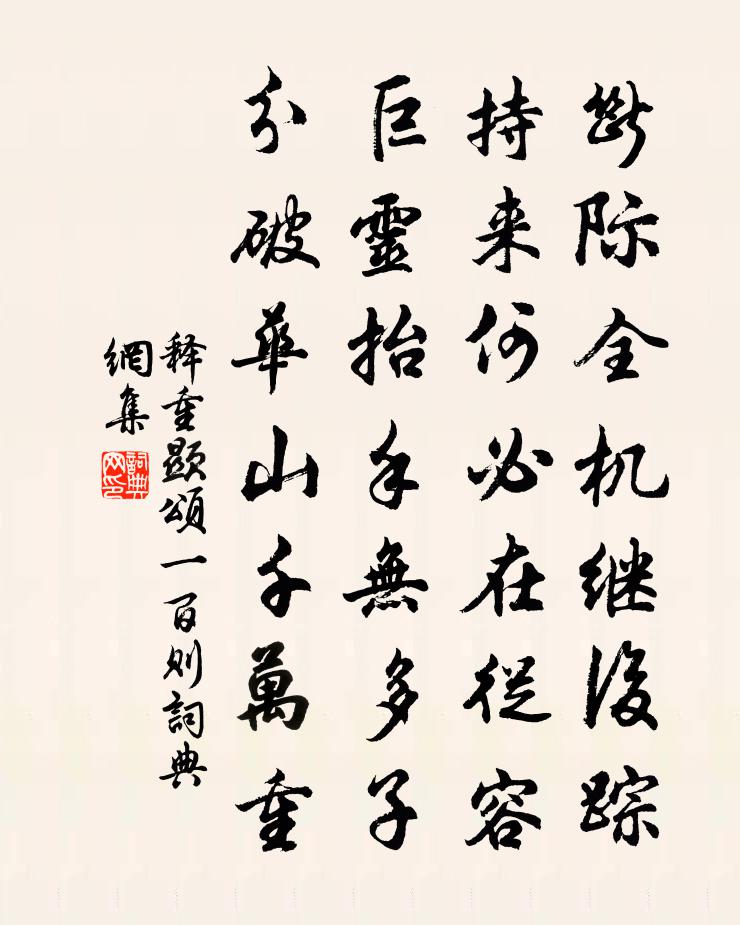 斷际全机继後踪
持来何必在從容
巨靈抬手無多子
分破華山千萬重
释重顕頌一百则詞典
網集
詞典
网印